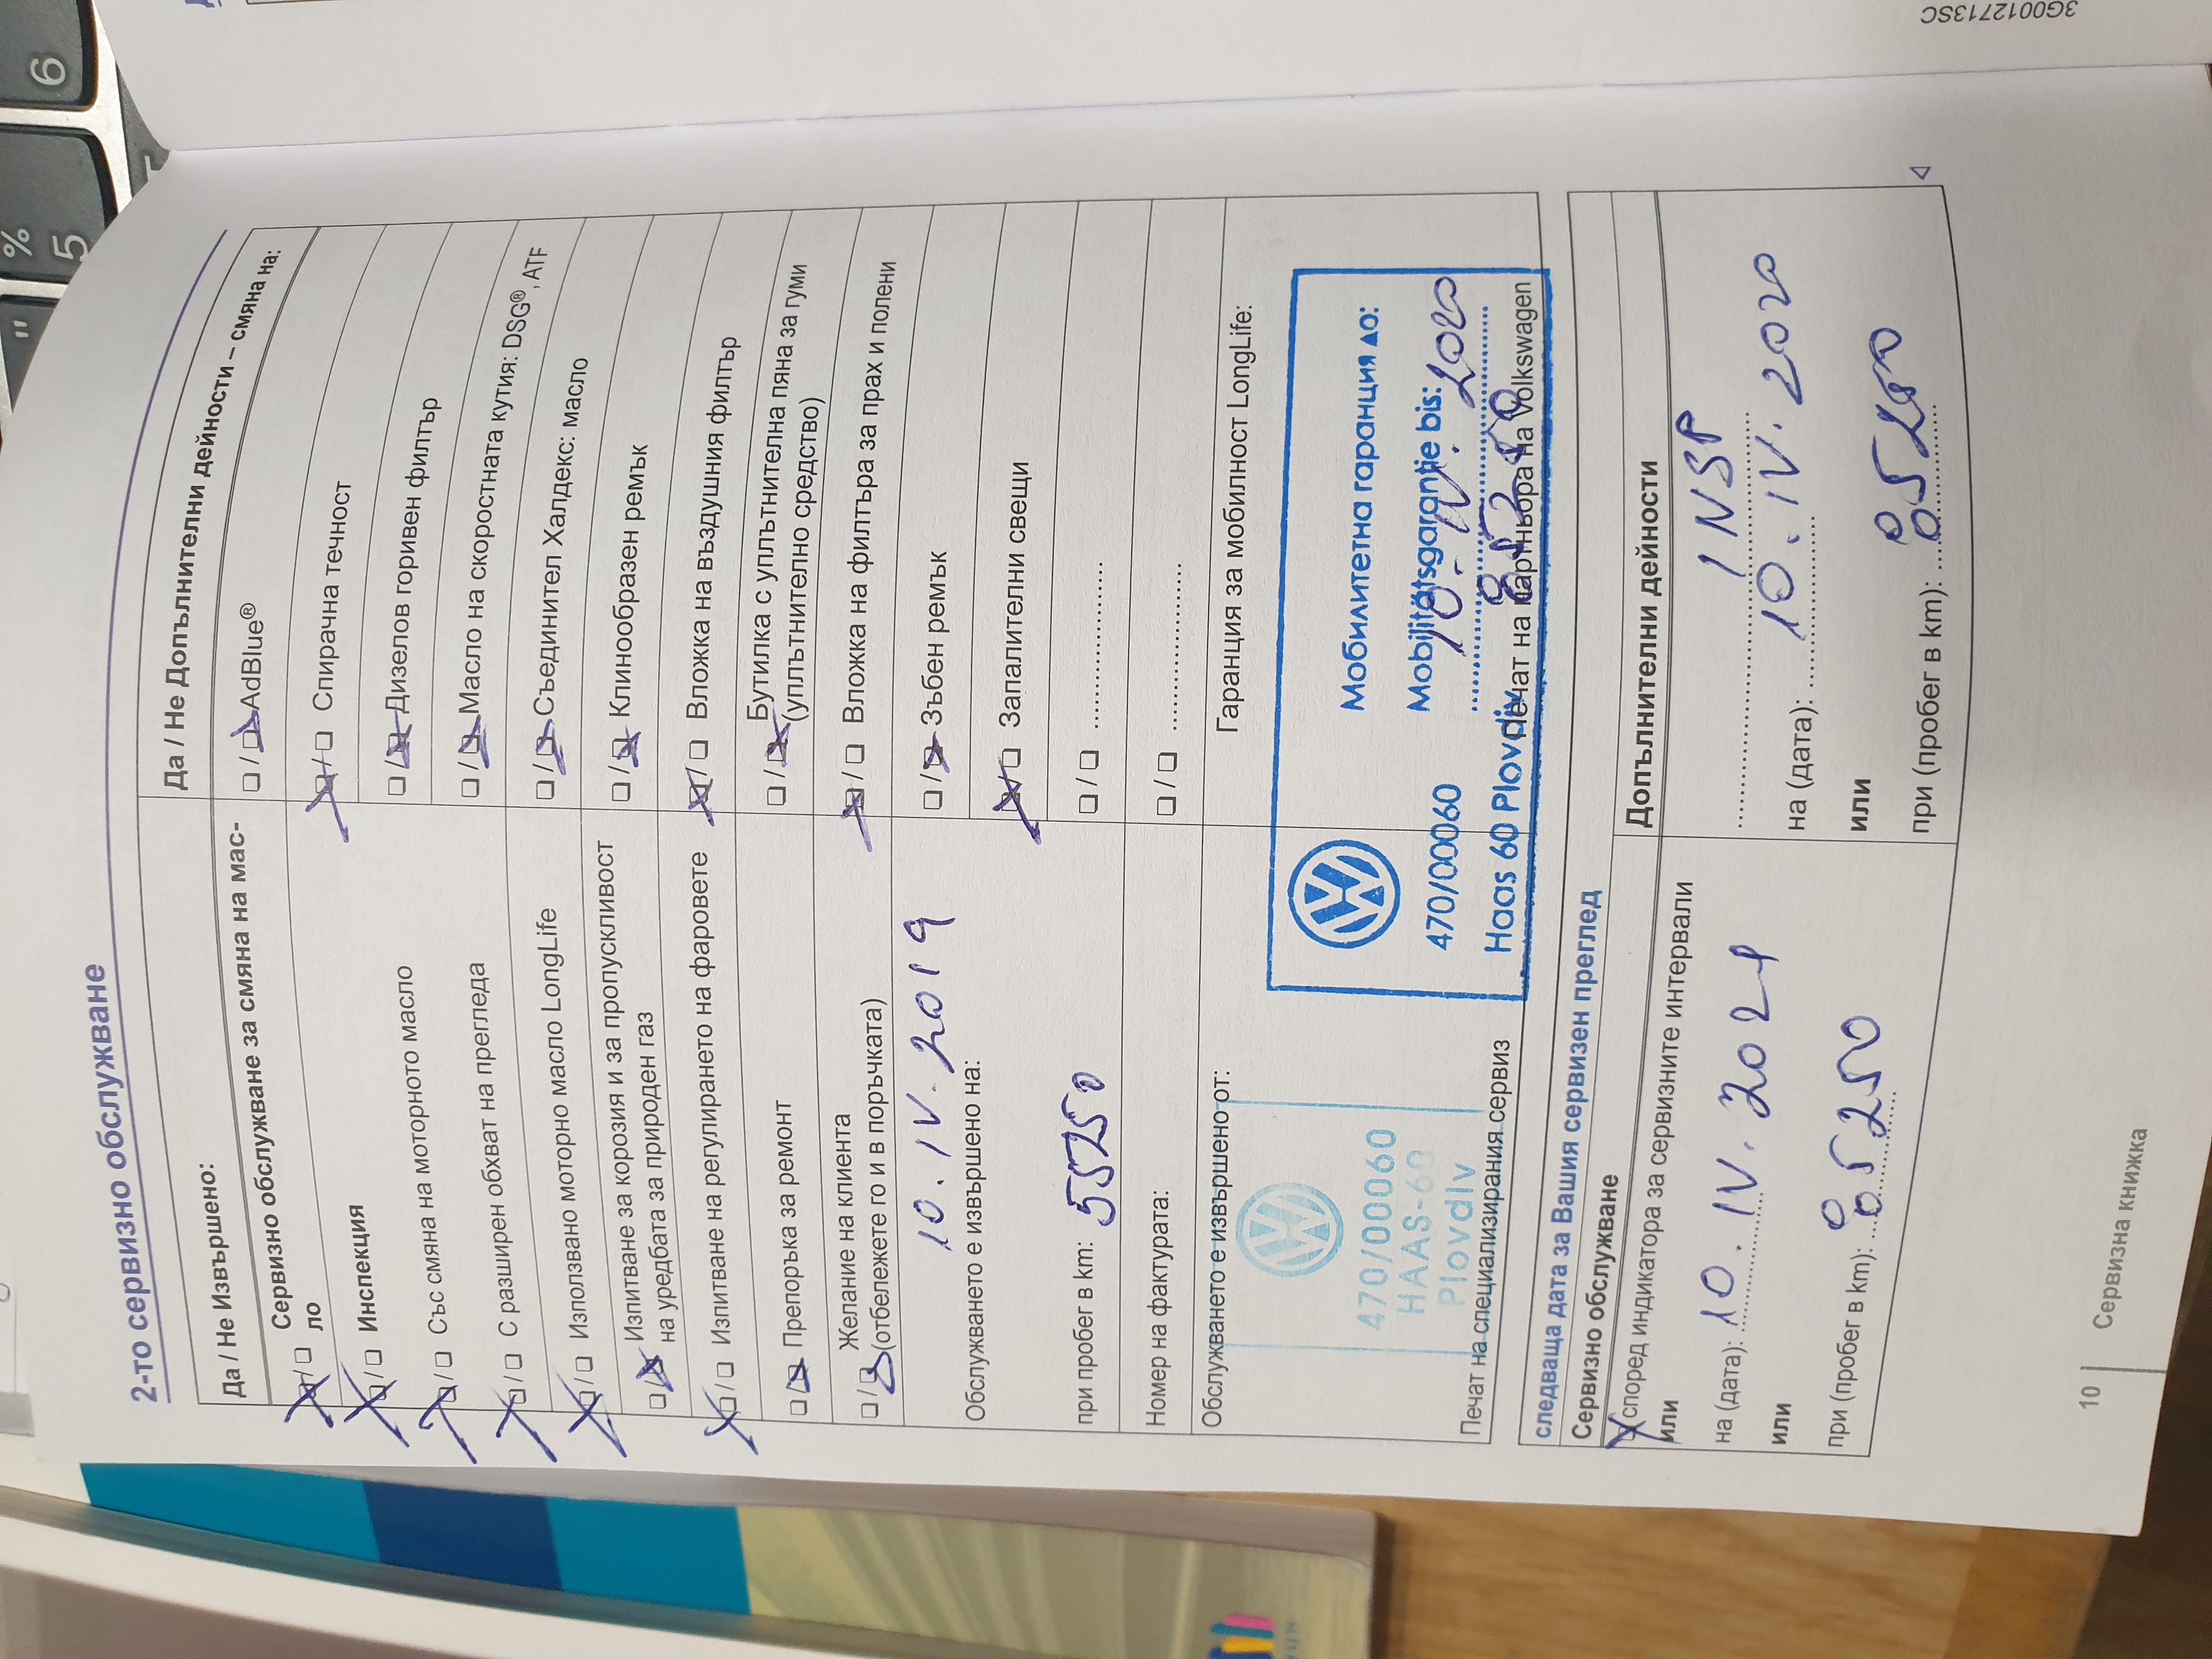 2-то сервизно обслужване
Да / Не Извършено:
Сервизно обслужване за смяна на мас-
ло
Инспекция
Със смяна на моторното масло
С разширен обхват на прегледа
Използвано моторно масло LongLife
Изпитване за корозия и за пропускливост
на уредбата за природен газ
Изпитване на регулирането на фаровете
Препоръка за ремонт
Желание на клиента
(отбележете го и в поръчката)
10. IV. 2019
Обслужването е извършено на:
при пробег в km: 55250
Номер на фактурата:
Обслужването е извършено от:
470/00060
HAAS-60
Plovdiv
Печат на специализирания сервиз
Да / Не Допълнителни дейности – смяна на:
AdBlue®
Спирачна течност
Дизелов горивен филтър
Масло на скоростната кутия: DSG®, ATF
Съединител Халдекс: масло
Клинообразен ремък
Вложка на въздушния филтър
Бутилка с уплътнителна пяна за гуми
(уплътнително средство)
Вложка на филтъра за прах и полени
Зъбен ремък
Запалителни свещи
....................
....................
Гаранция за мобилност LongLife:
Мобилитетна гаранция до:
470/00060 Mobilitätsgarantie bis:
10. IV. 2020
85250
Haas 60 Plovdiv
Печат на партньора на Volkswagen
следваща дата за Вашия сервизен преглед
Сервизно обслужване
според индикатора за сервизните интервали
или
на (дата): 10. IV. 2021
или
при (пробег в km): 85250
Допълнителни дейности
INSP
на (дата): 10. IV. 2020
или
при (пробег в km): 85250
10 Сервизна книжка
3G0012713SC
%
5
6
"